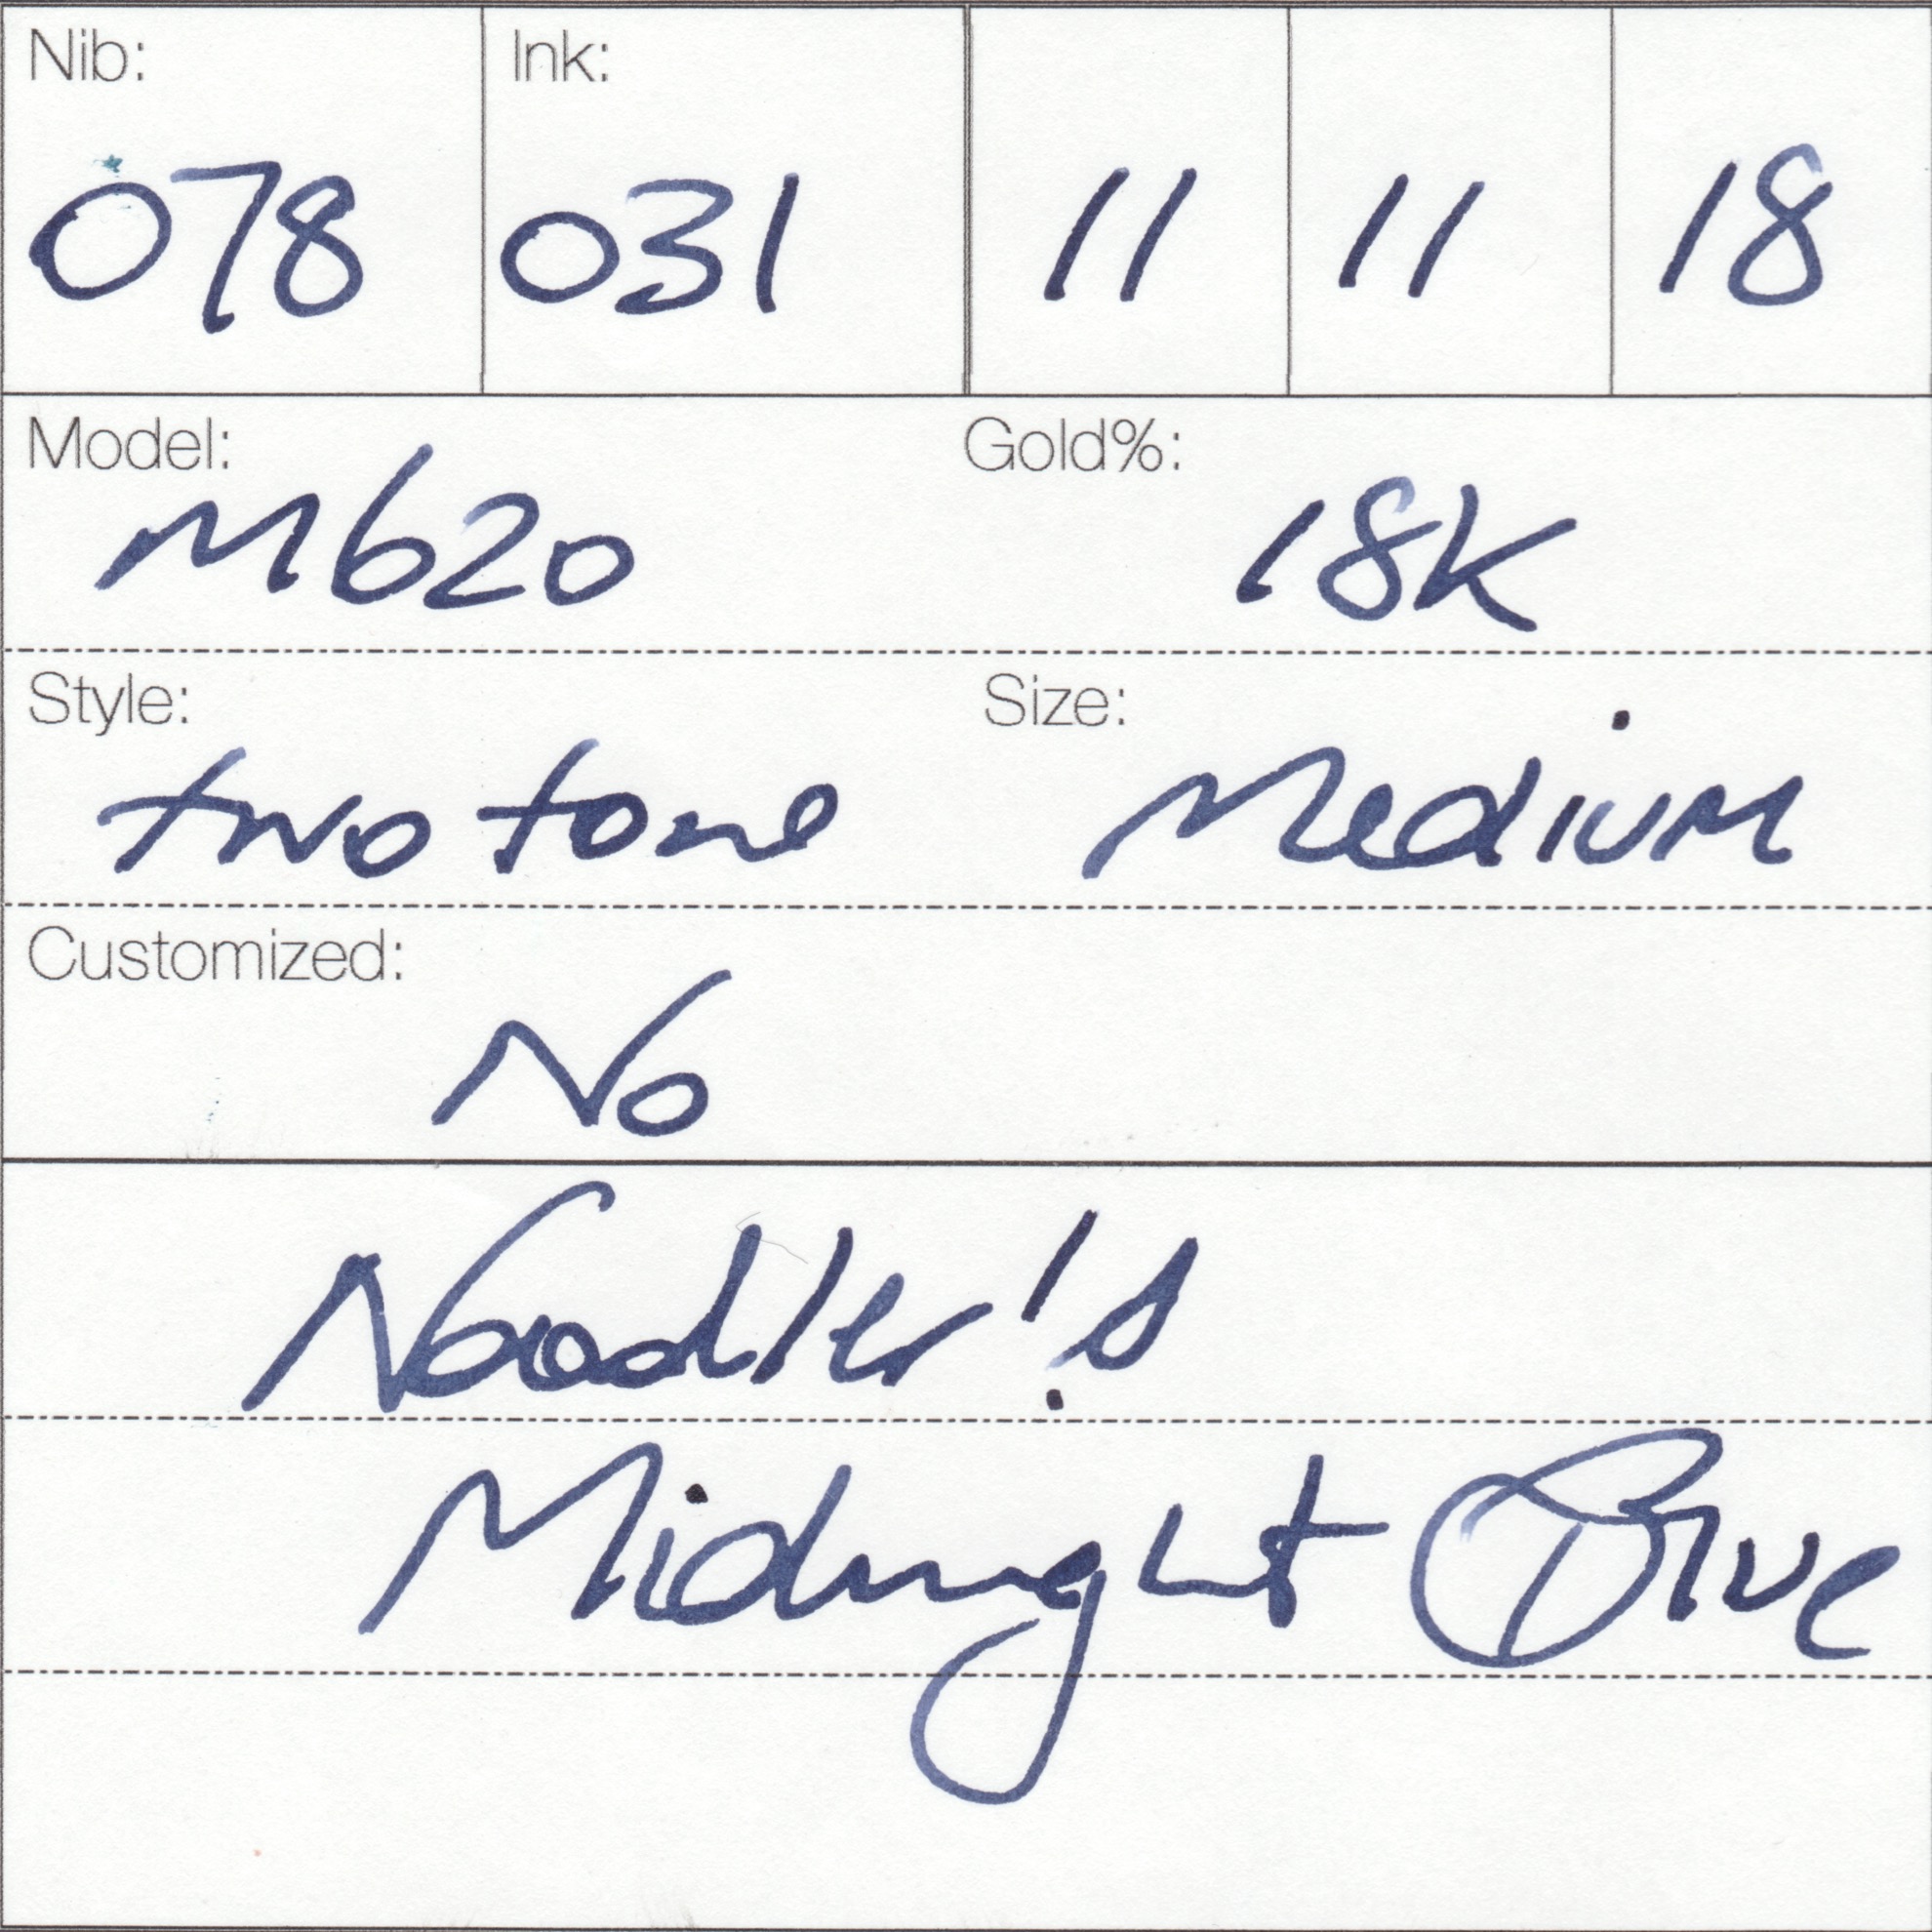 Nib: Ink:
078 031 11 11 18
Model: Gold%:
M620 18K
Style: Size:
two tone Medium
Customized:
No
Noodler's
Midnight Blue